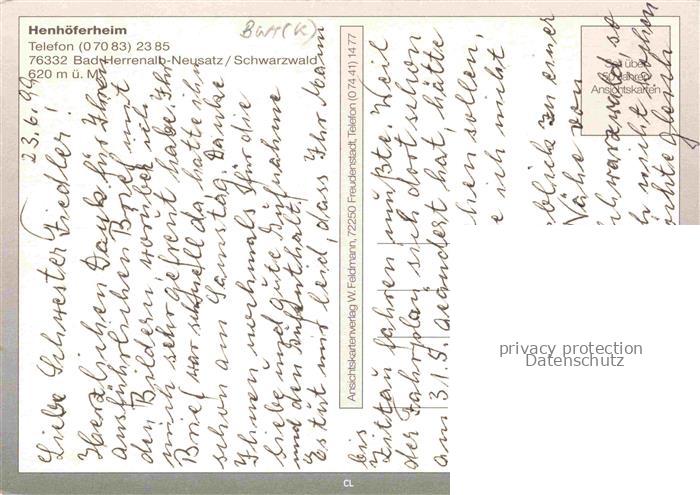 Henhöferheim
Telefon (0 70 83) 23 85
76332 Bad Herrenalb-Neusatz / Schwarzwald
620 m ü. M.
BW(K)
Ansichtskartenverlag W. Feldmann, 72250 Freudenstadt, Telefon (0 74 41) 14 77
Seit über
50 Jahren
Ansichtskarten
23.6.99
Liebe Schwester Fiedler!
Herzlichen Dank für Ihren
ausführlichen Brief mit
den Bildern, worüber ich
mich sehr gefreut habe. Ihr
Brief war schnell da, hatte ihn
schon am Samstag. Danke
Ihnen nochmals für die
liebe und gute Aufnahme
und den Aufenthalt.
Es tut mir leid, dass Ihr Mann
bis
Zittau fahren mußte. Weil
der Fahrplan sich dort schon
am 31.5. geändert hat, hätte
hen sollen,
e ich nicht
blick zu einer
Nähe von
chwarzwald, so
mit
gleich
privacy protection
Datenschutz
CL